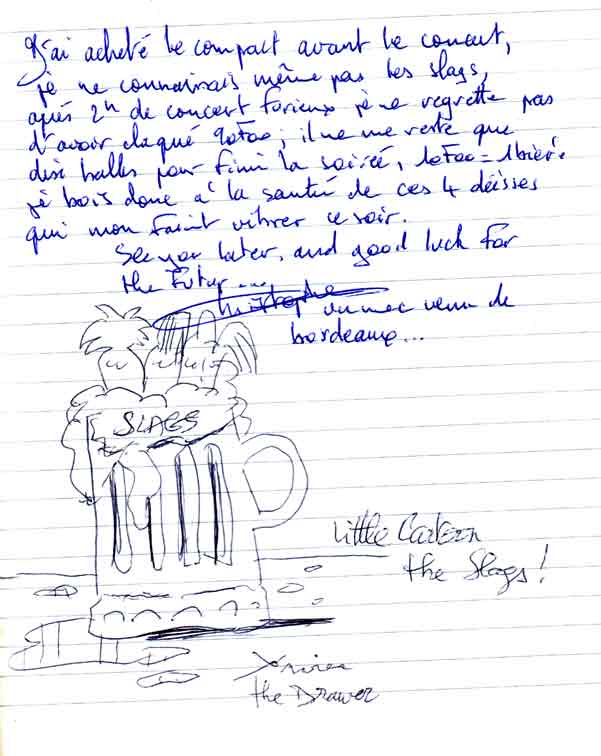 J'ai acheté le compact avant le concert,
je ne connaissais même pas les slags,
après 2h de concert furieux je ne regrette pas
d'avoir claqué 90Foo; il ne me reste que
dix balles pour finir la soirée, 10Foo = 1bière.
je bois donc à la santé de ces 4 déesses
qui mon faint vibrer ce soir.
See you later, and good luck for
the Futur...
un mec venu de
bordeaux...
SLAGS
Little Cartoon
the Slags!
the Drawer